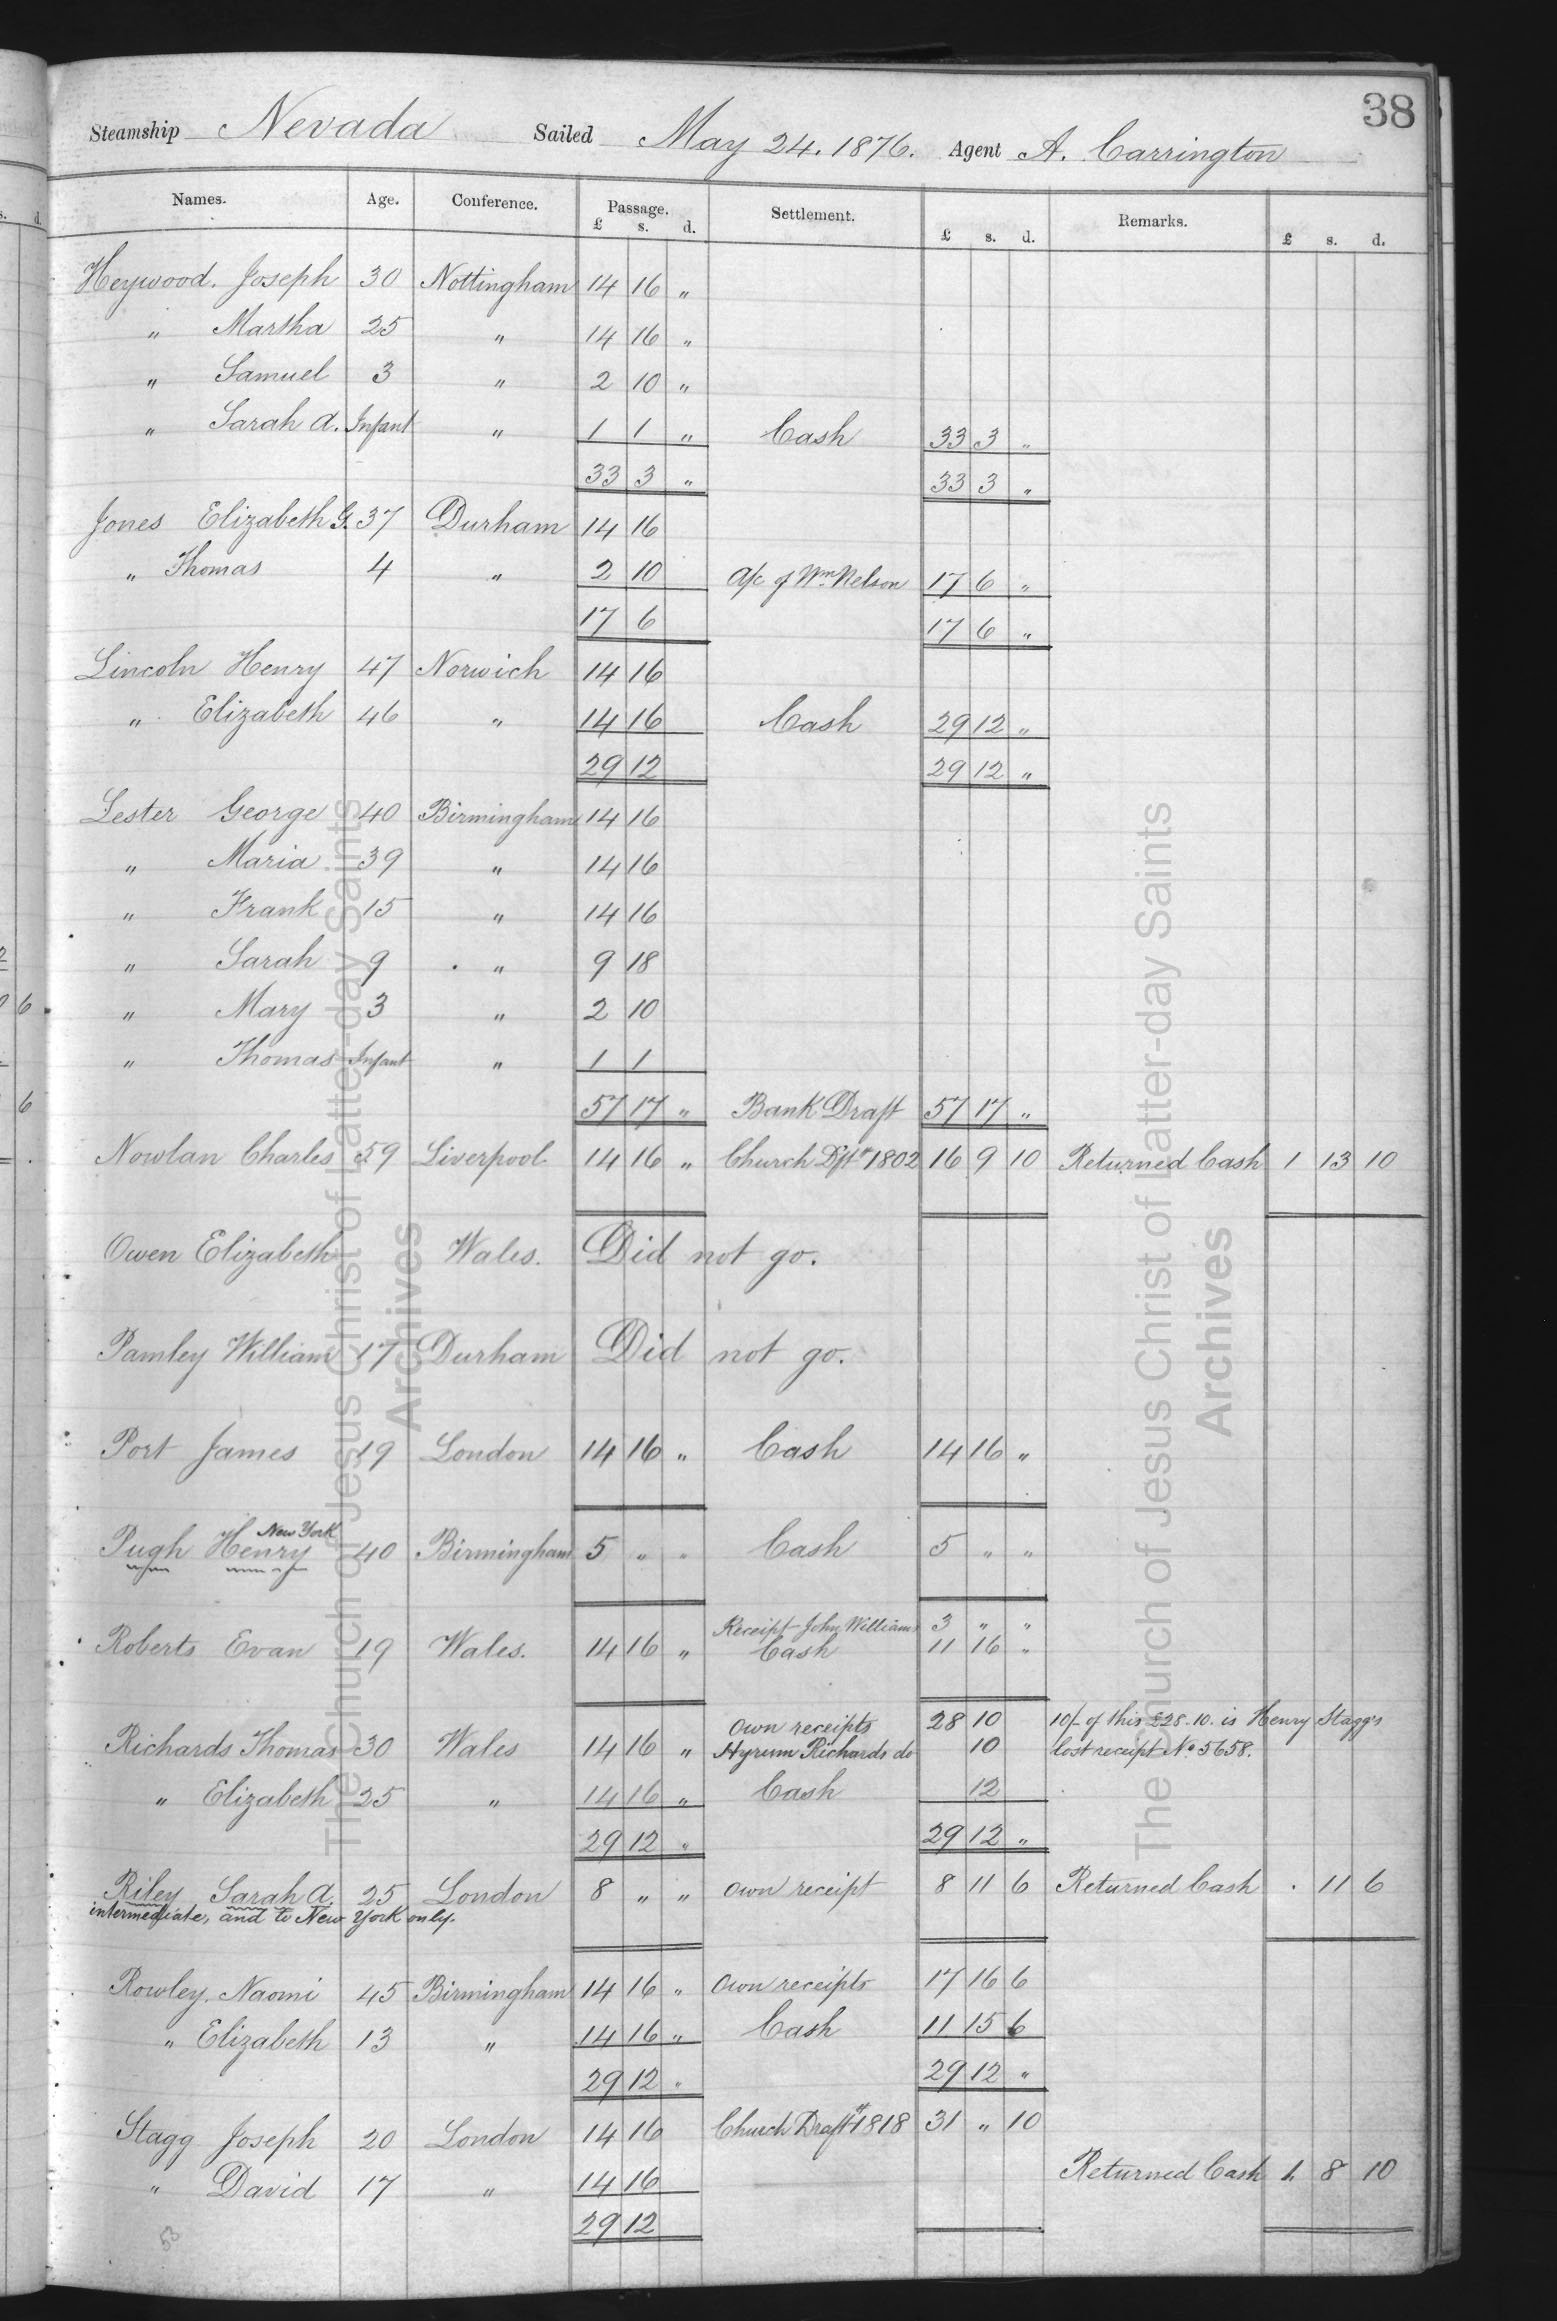 38
Steamship Nevada Sailed May 24. 1876. Agent A. Carrington
Names. Age. Conference. Passage. Settlement. Remarks.
£ s. d. £ s. d. £ s. d.
Heywood. Joseph 30 Nottingham 14 16 "
" Martha 25 " 14 16 "
" Samuel 3 " 2 10 "
" Sarah A. Infant " 1 1 " Cash 33 3 "
33 3 " 33 3 "
Jones Elizabeth G. 37 Durham 14 16
" Thomas 4 " 2 10 a/c of Wm. Nelson 17 6 "
17 6 17 6 "
Lincoln Henry 47 Norwich 14 16
" Elizabeth 46 " 14 16 Cash 29 12 "
29 12 29 12 "
Lester George 40 Birmingham 14 16
" Maria 39 " 14 16
" Frank 15 " 14 16
" Sarah 9 " 9 18
" Mary 3 " 2 10
" Thomas Infant " 1 1
57 17 " Bank Draft 57 17 "
Nowlan Charles 59 Liverpool 14 16 " Church Dft # 1802 16 9 10 Returned Cash 1 13 10
Owen Elizabeth Wales. Did not go.
Pamley William 17 Durham Did not go.
Port James 19 London 14 16 " Cash 14 16 "
New York
Pugh Henry 40 Birmingham 5 " " Cash 5 " "
Receipt John Williams 3 " "
Roberts Evan 19 Wales. 14 16 " Cash 11 16 "
Own receipts 28 10 10/- of this £28.10. is Henry Stagg's
Richards Thomas 30 Wales 14 16 " Hyrum Richards do 10 lost receipt No. 5658.
" Elizabeth 25 " 14 16 " Cash 12
29 12 " 29 12 "
Riley Sarah A. 25 London 8 " " Own receipt 8 11 6 Returned Cash . 11 6
intermediate, and to New York only.
Rowley. Naomi 45 Birmingham 14 16 " Own receipts 17 16 6
" Elizabeth 13 " 14 16 " Cash 11 15 6
29 12 " 29 12 "
Stagg Joseph 20 London 14 16 Church Draft # 1818 31 " 10
" David 17 " 14 16 Returned Cash 1. 8 10
29 12
53
The Church of Jesus Christ of Latter-day Saints
Archives
The Church of Jesus Christ of Latter-day Saints
Archives